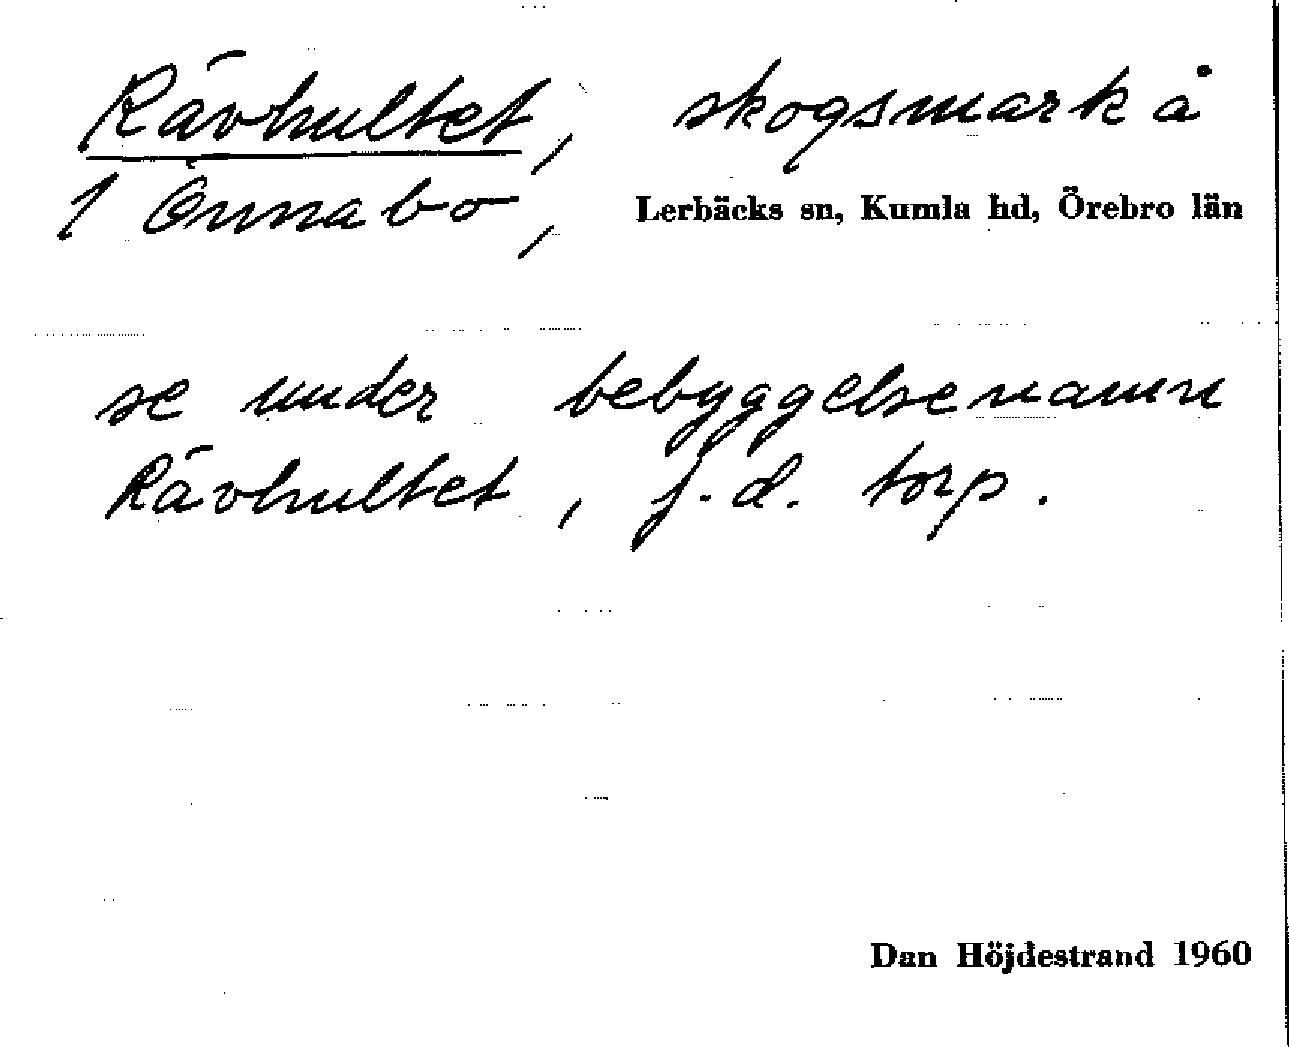 Rävhultet, skogsmark å
1 Önnabo, Lerbäcks sn, Kumla hd, Örebro län
se under bebyggelsenamn
Rävhultet, f.d. torp.
Dan Höjdestrand 1960